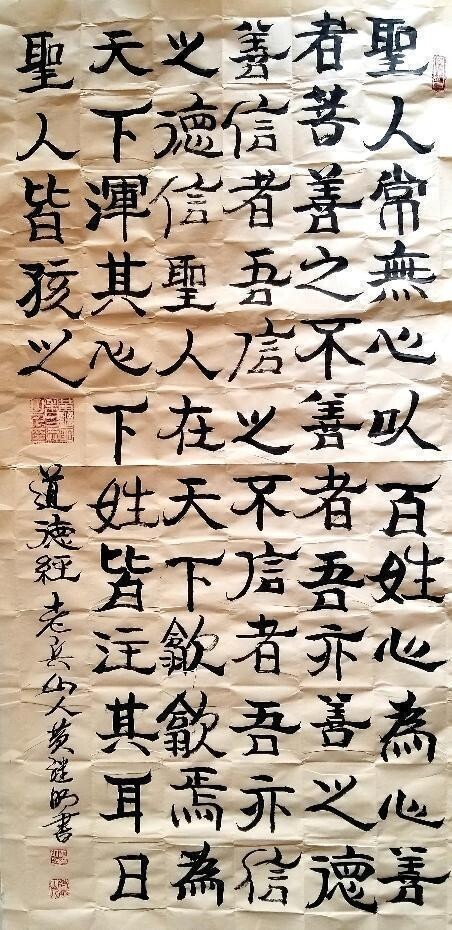 聖人常無心以百姓心為心善
者菩善之不善者吾亦善之德
善信者吾信之不信者吾亦信
之德信聖人在天下歙歙焉為
天下渾其心下姓皆注其耳日
聖人皆孩之
道德經 老兵山人黄明書